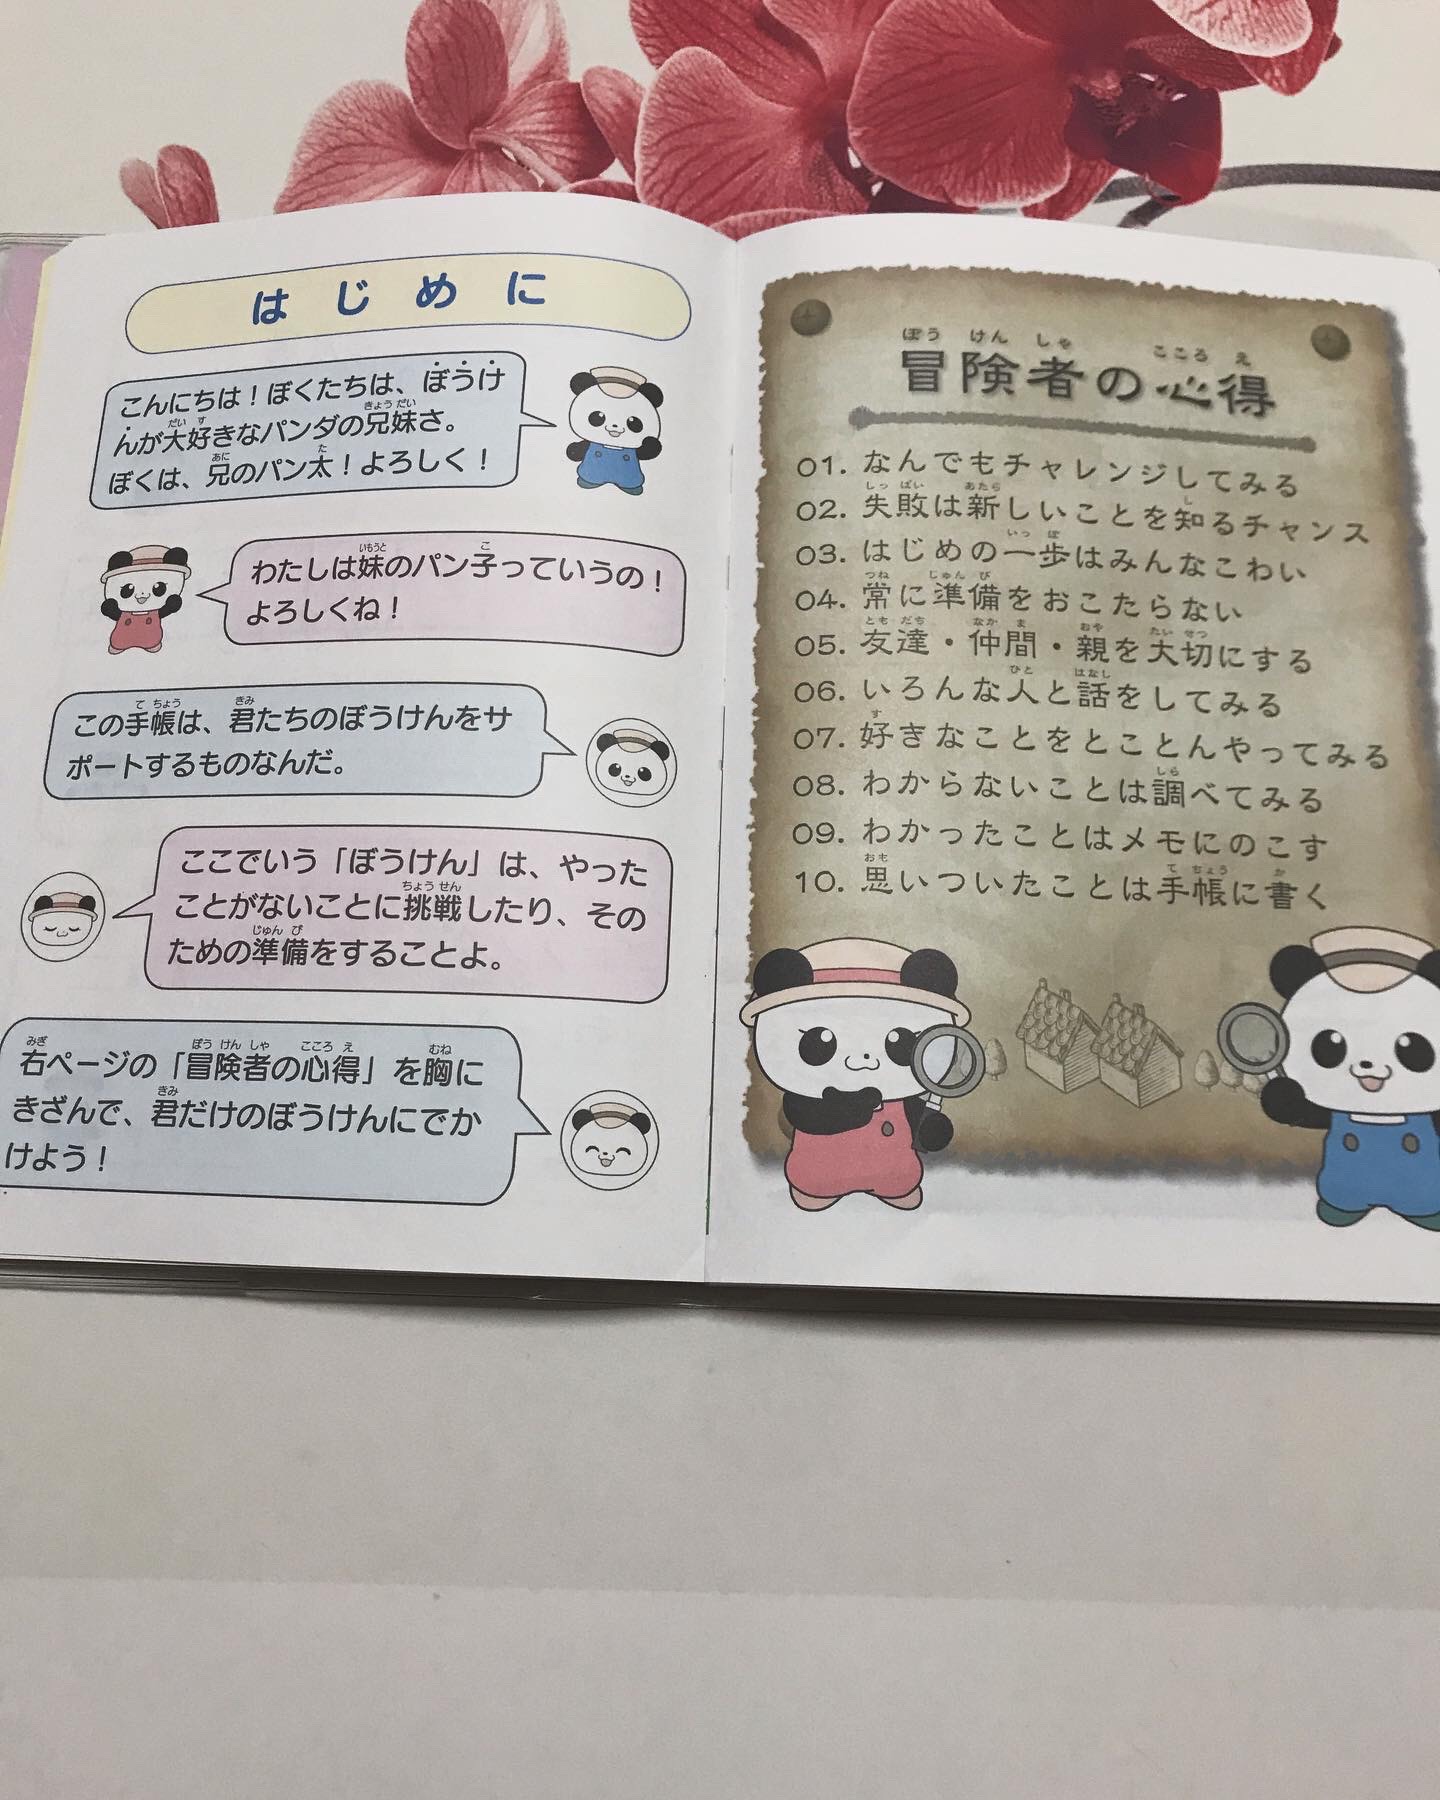 はじめに
こんにちは！ぼくたちは、ぼうけ
んが大好きなパンダの兄妹さ。
ぼくは、兄のパン太！よろしく！
わたしは妹のパン子っていうの！
よろしくね！
この手帳は、君たちのぼうけんをサ
ポートするものなんだ。
ここでいう「ぼうけん」は、やった
ことがないことに挑戦したり、その
ための準備をすることよ。
右ページの「冒険者の心得」を胸に
きざんで、君だけのぼうけんにでか
けよう！
冒険者の心得
01. なんでもチャレンジしてみる
02. 失敗は新しいことを知るチャンス
03. はじめの一歩はみんなこわい
04. 常に準備をおこたらない
05. 友達・仲間・親を大切にする
06. いろんな人と話をしてみる
07. 好きなことをとことんやってみる
08. わからないことは調べてみる
09. わかったことはメモにのこす
10. 思いついたことは手帳に書く